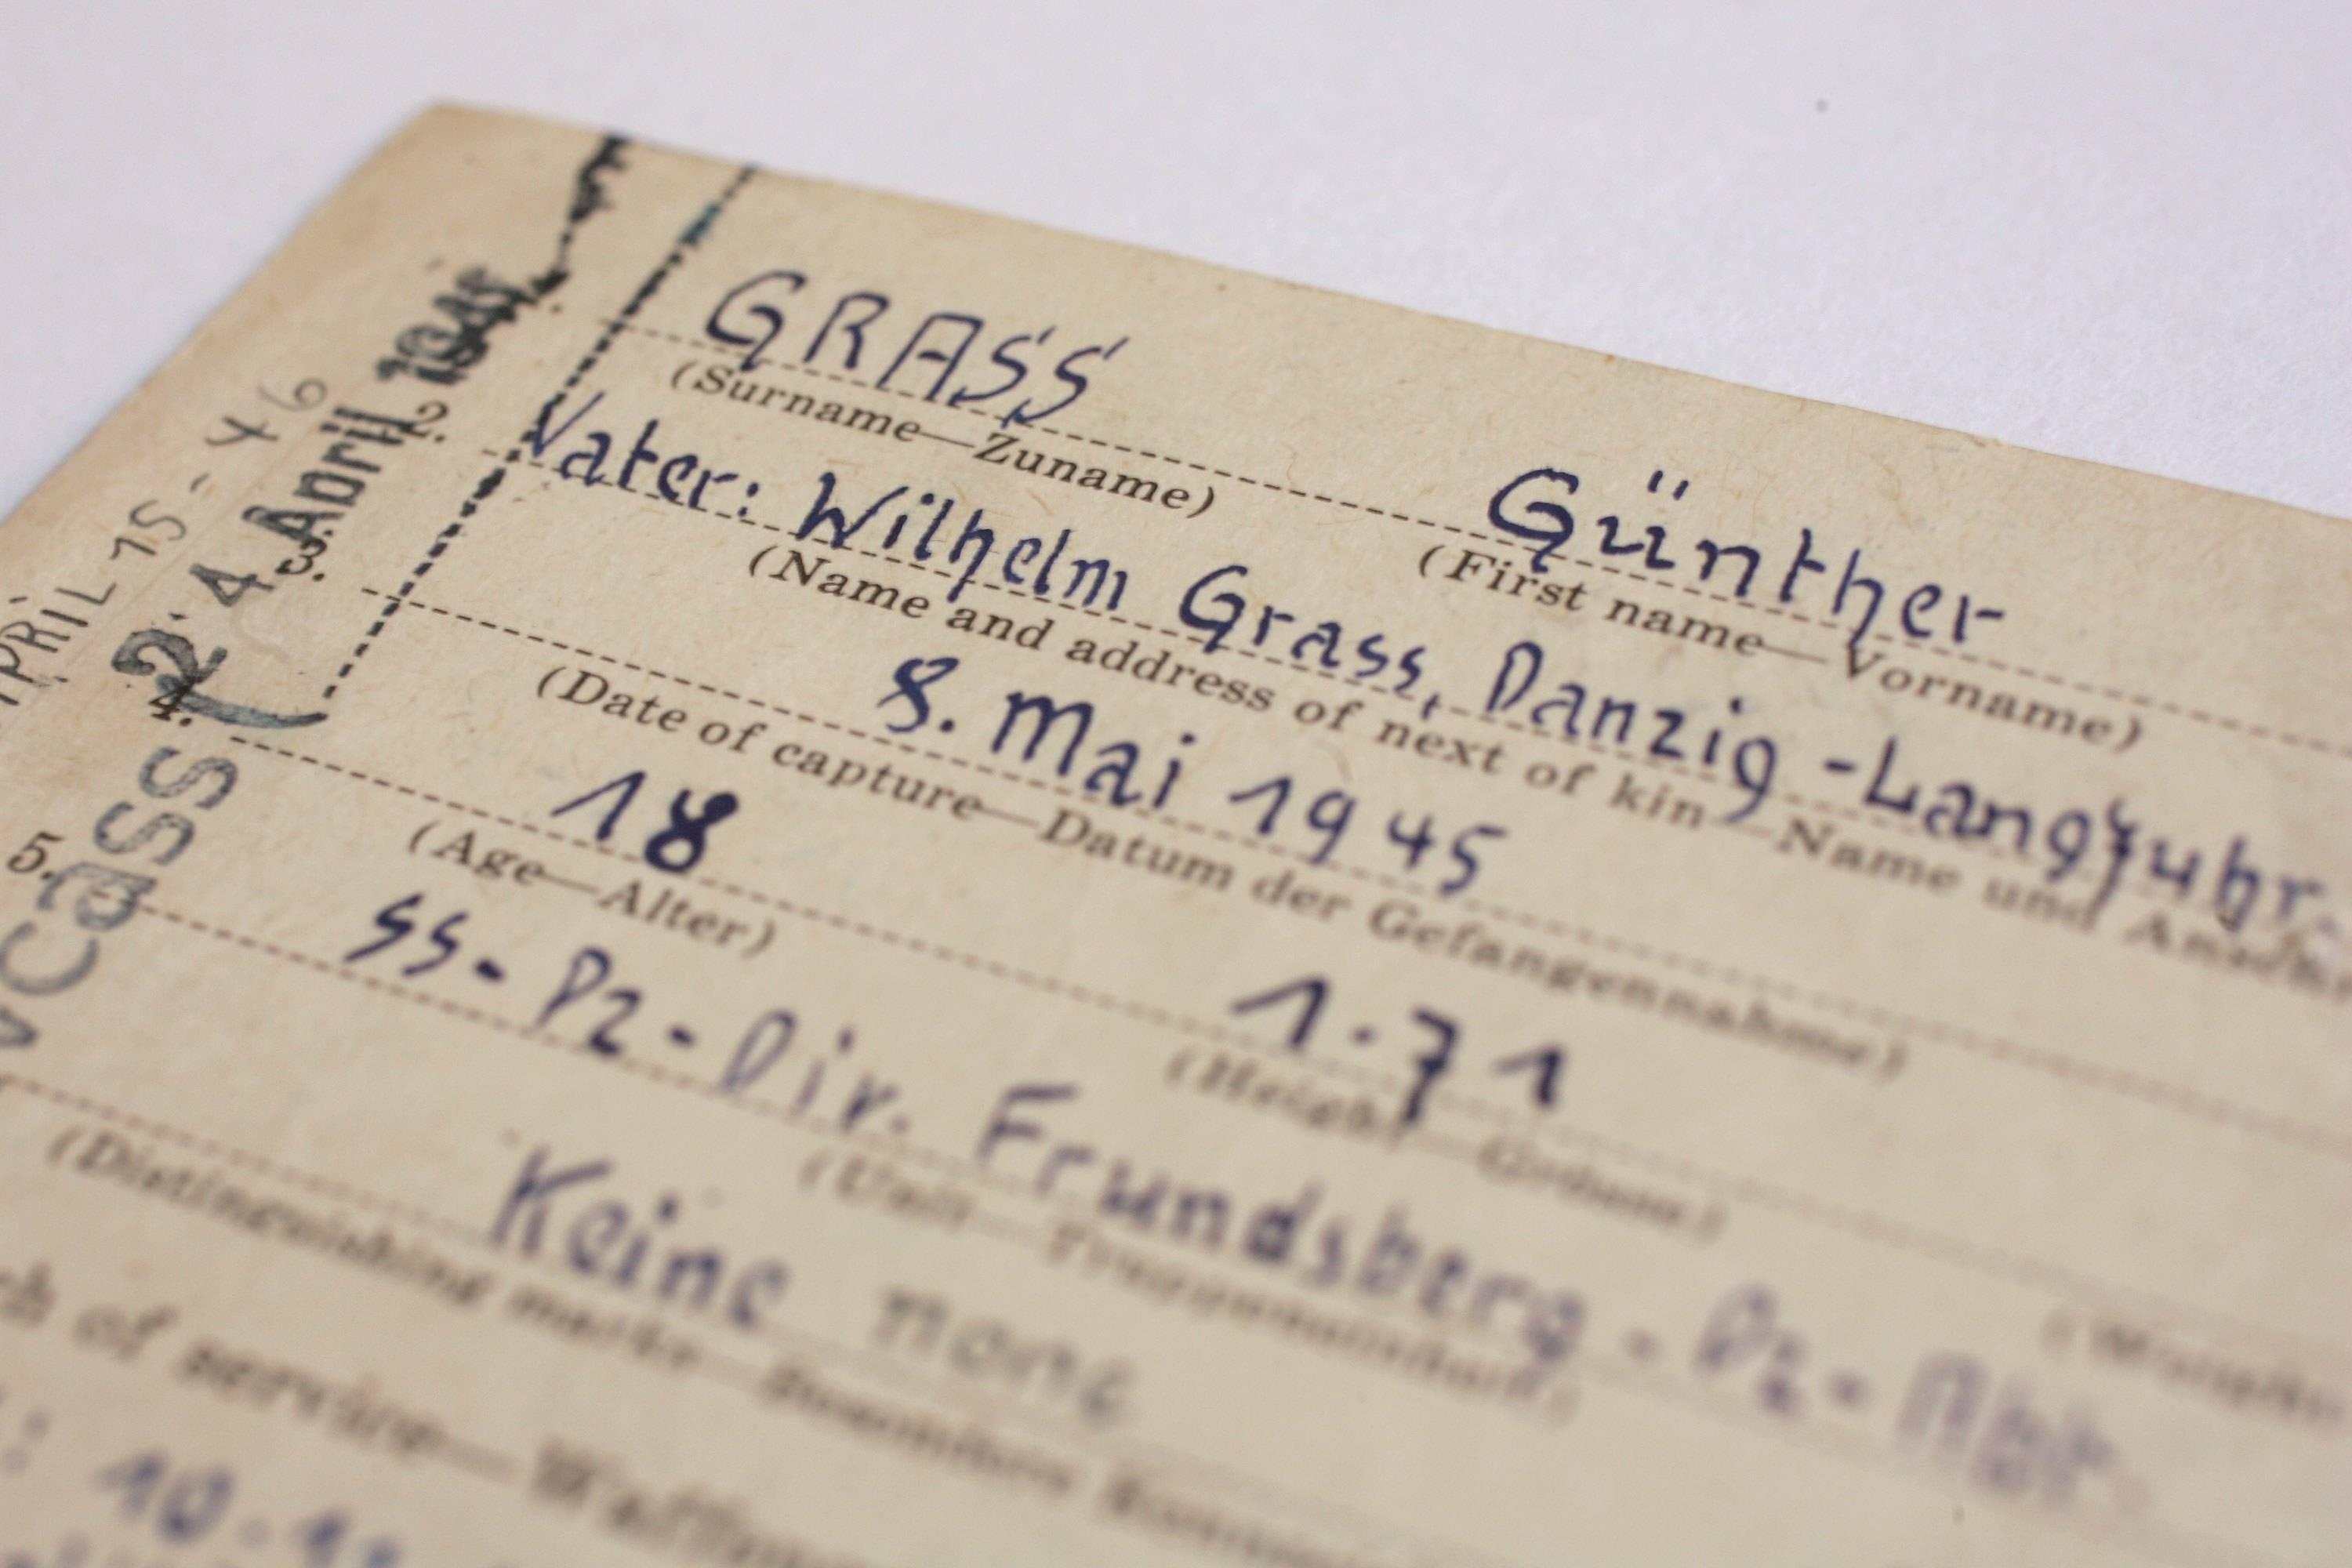 GRASS Günther
(Surname—Zuname) (First name—Vorname)
2. Vater: Wilhelm Grass, Danzig-Langfuhr.
(Name and address of next of kin—Name und
3. 8. Mai 1945
(Date of capture—Datum der Gefangennahme)
4. 18 1.71
(Age—Alter) (Height—Grösse)
5. SS-Pz-Div. Frundsberg-Pz-Abt.
(Unit—
Keine none
(Distinguishing marks—
of service—
24 April
PRIL 15-46